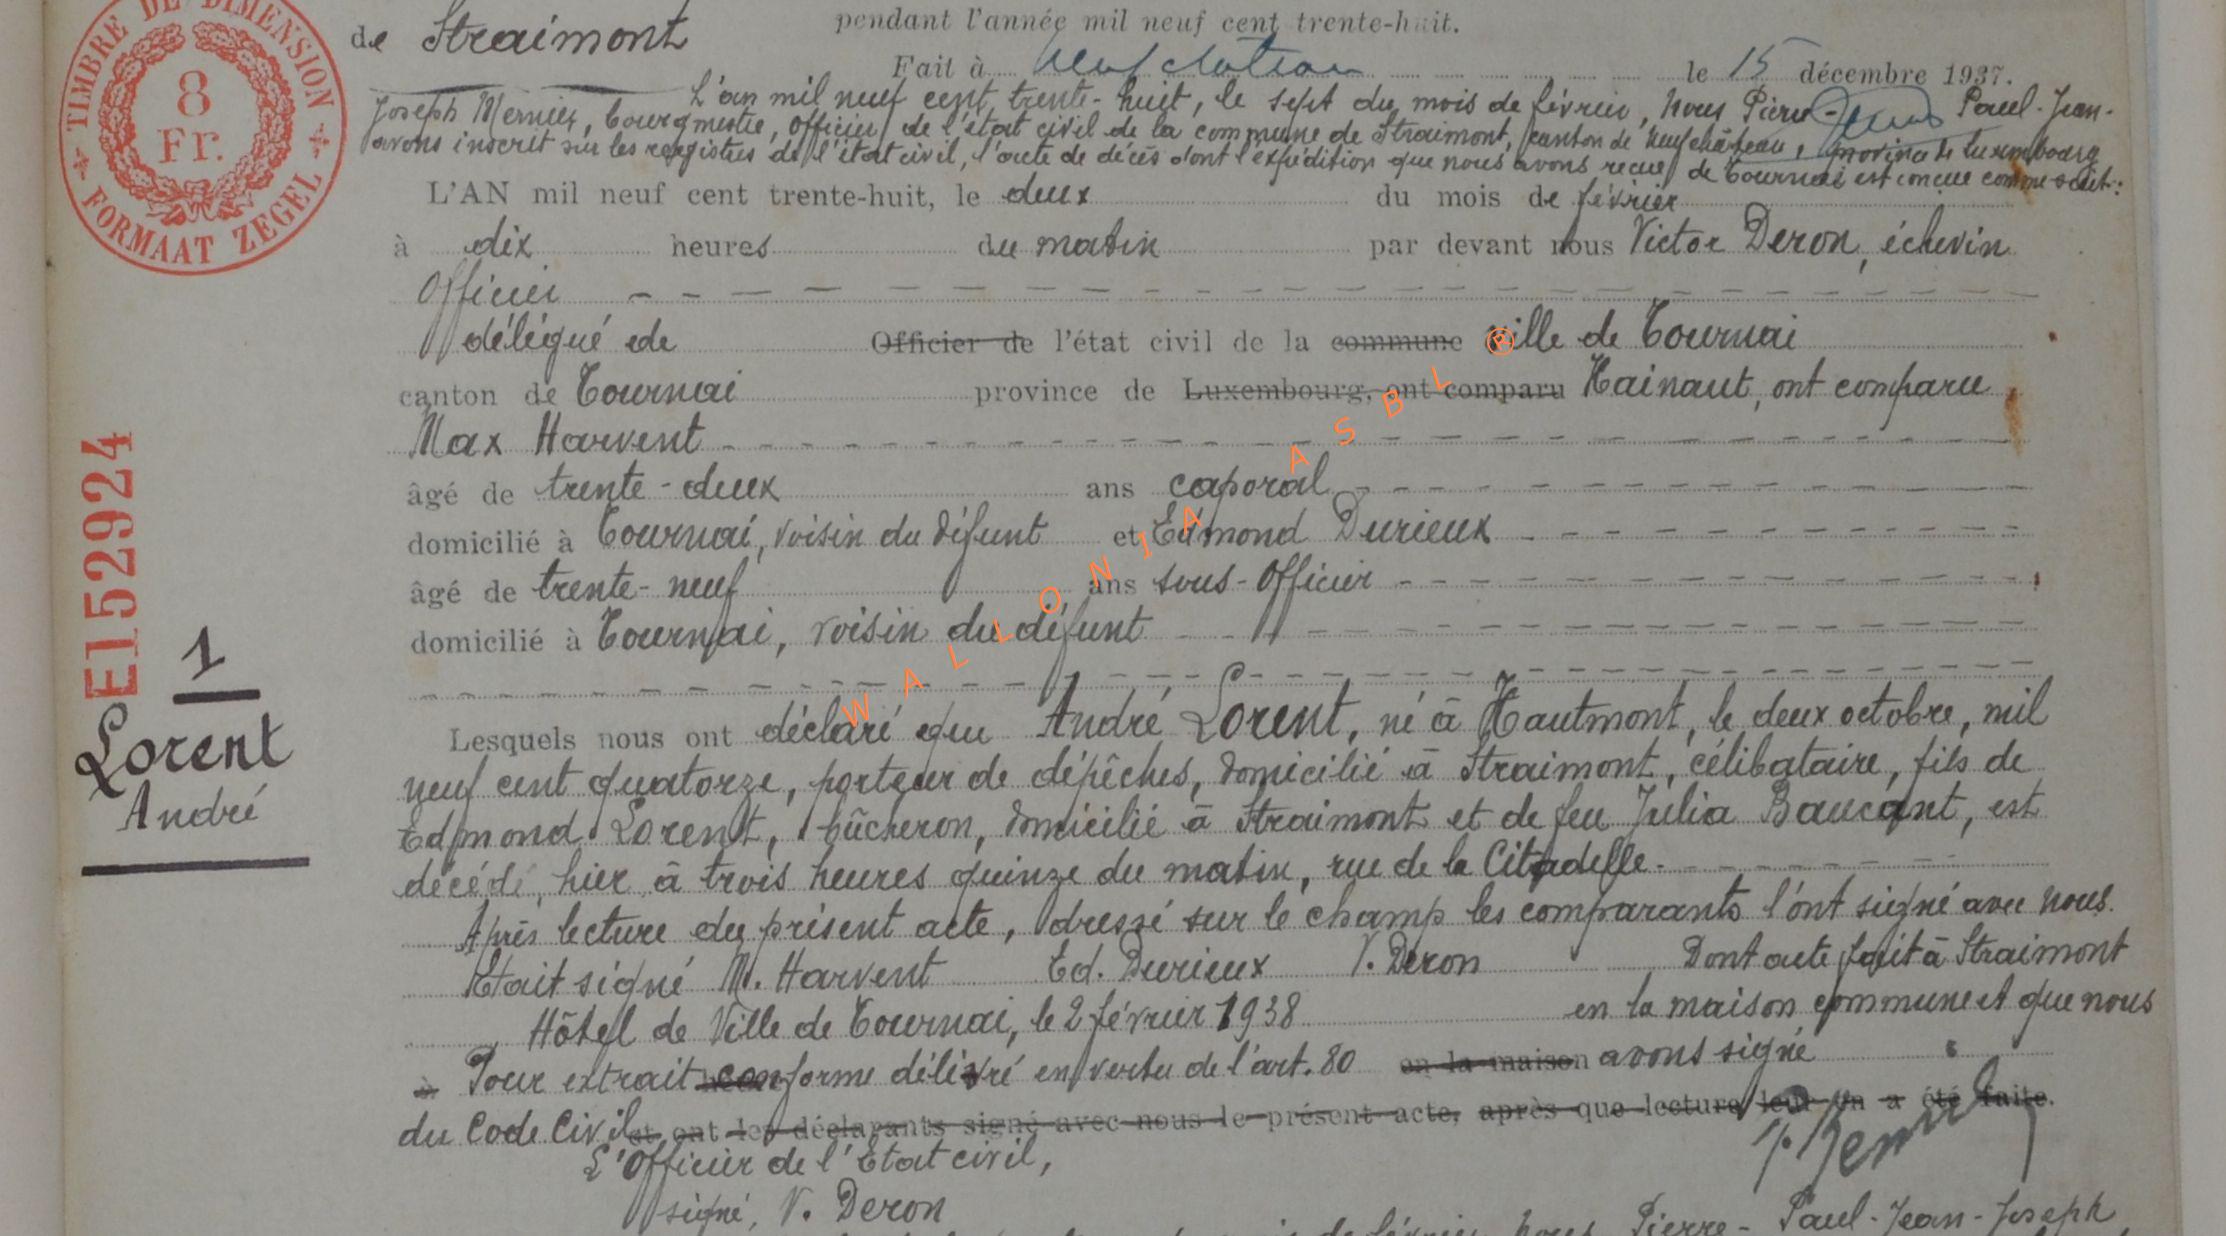 TIMBRE DE DIMENSION
8
Fr.
FORMAAT ZEGEL
E152924
1
Lorent
André
de Straimont
pendant l'année mil neuf cent trente-huit.
Fait à Neufchâteau le 15 décembre 1937.
L'an mil neuf cent trente-huit, le sept du mois de février, Nous Pierre- Paul-Jean-
Joseph Mernier, bourgmestre, Officier de l'état civil de la commune de Straimont, canton de Neufchâteau, province de Luxembourg
avons inscrit sur les registres de l'état civil, l'acte de décès dont l'expédition que nous avons reçue de Tournai est conçue comme suit:
L'AN mil neuf cent trente-huit, le deux du mois de février
à dix heures du matin par devant nous Victor Deron, échevin
Officier
délégué de Officier de l'état civil de la commune ville de Tournai
canton de Tournai province de Luxembourg, ont comparu Hainaut, ont comparu
Max Harvent
âgé de trente-deux ans caporal
domicilié à Tournai, voisin du défunt et Edmond Durieux
âgé de trente-neuf ans sous-Officier
domicilié à Tournai, voisin du défunt
Lesquels nous ont déclaré que André Lorent, né à Hautmont, le deux octobre, mil
neuf cent quatorze, porteur de dépêches, domicilié à Straimont, célibataire, fils de
Edmond Lorent, bûcheron, domicilié à Straimont et de feu Julia Baucant, est
décédé, hier à trois heures quinze du matin, rue de la Citadelle.
Après lecture du présent acte, dressé sur le champ les comparants l'ont signé avec nous.
Etait signé M. Harvent Ed. Durieux V. Deron Dont acte fait à Straimont
Hôtel de Ville de Tournai, le 2 février 1938 en la maison commune et que nous
à Pour extrait conforme délivré en vertu de l'art. 80 en la maison avons signé
du Code Civil et ont les déclarants signé avec nous le présent acte, après que lecture leur en a été faite.
L'Officier de l'Etat civil,
signé, V. Deron
de février, Nous Pierre- Paul-Jean-Joseph
WALLONIA ASBL ®